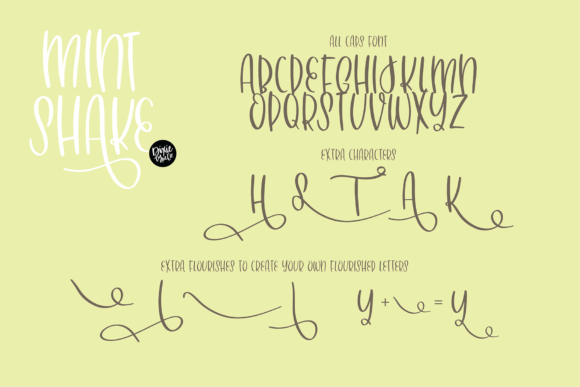 MINT
SHAKE
Dixie
Type Co
ALL CAPS FONT
ABCDEFGHIJKLMN
OPQRSTUVWXYZ
EXTRA CHARACTERS
H S T A K
EXTRA FLOURISHES TO CREATE YOUR OWN FLOURISHED LETTERS
Y + = Y